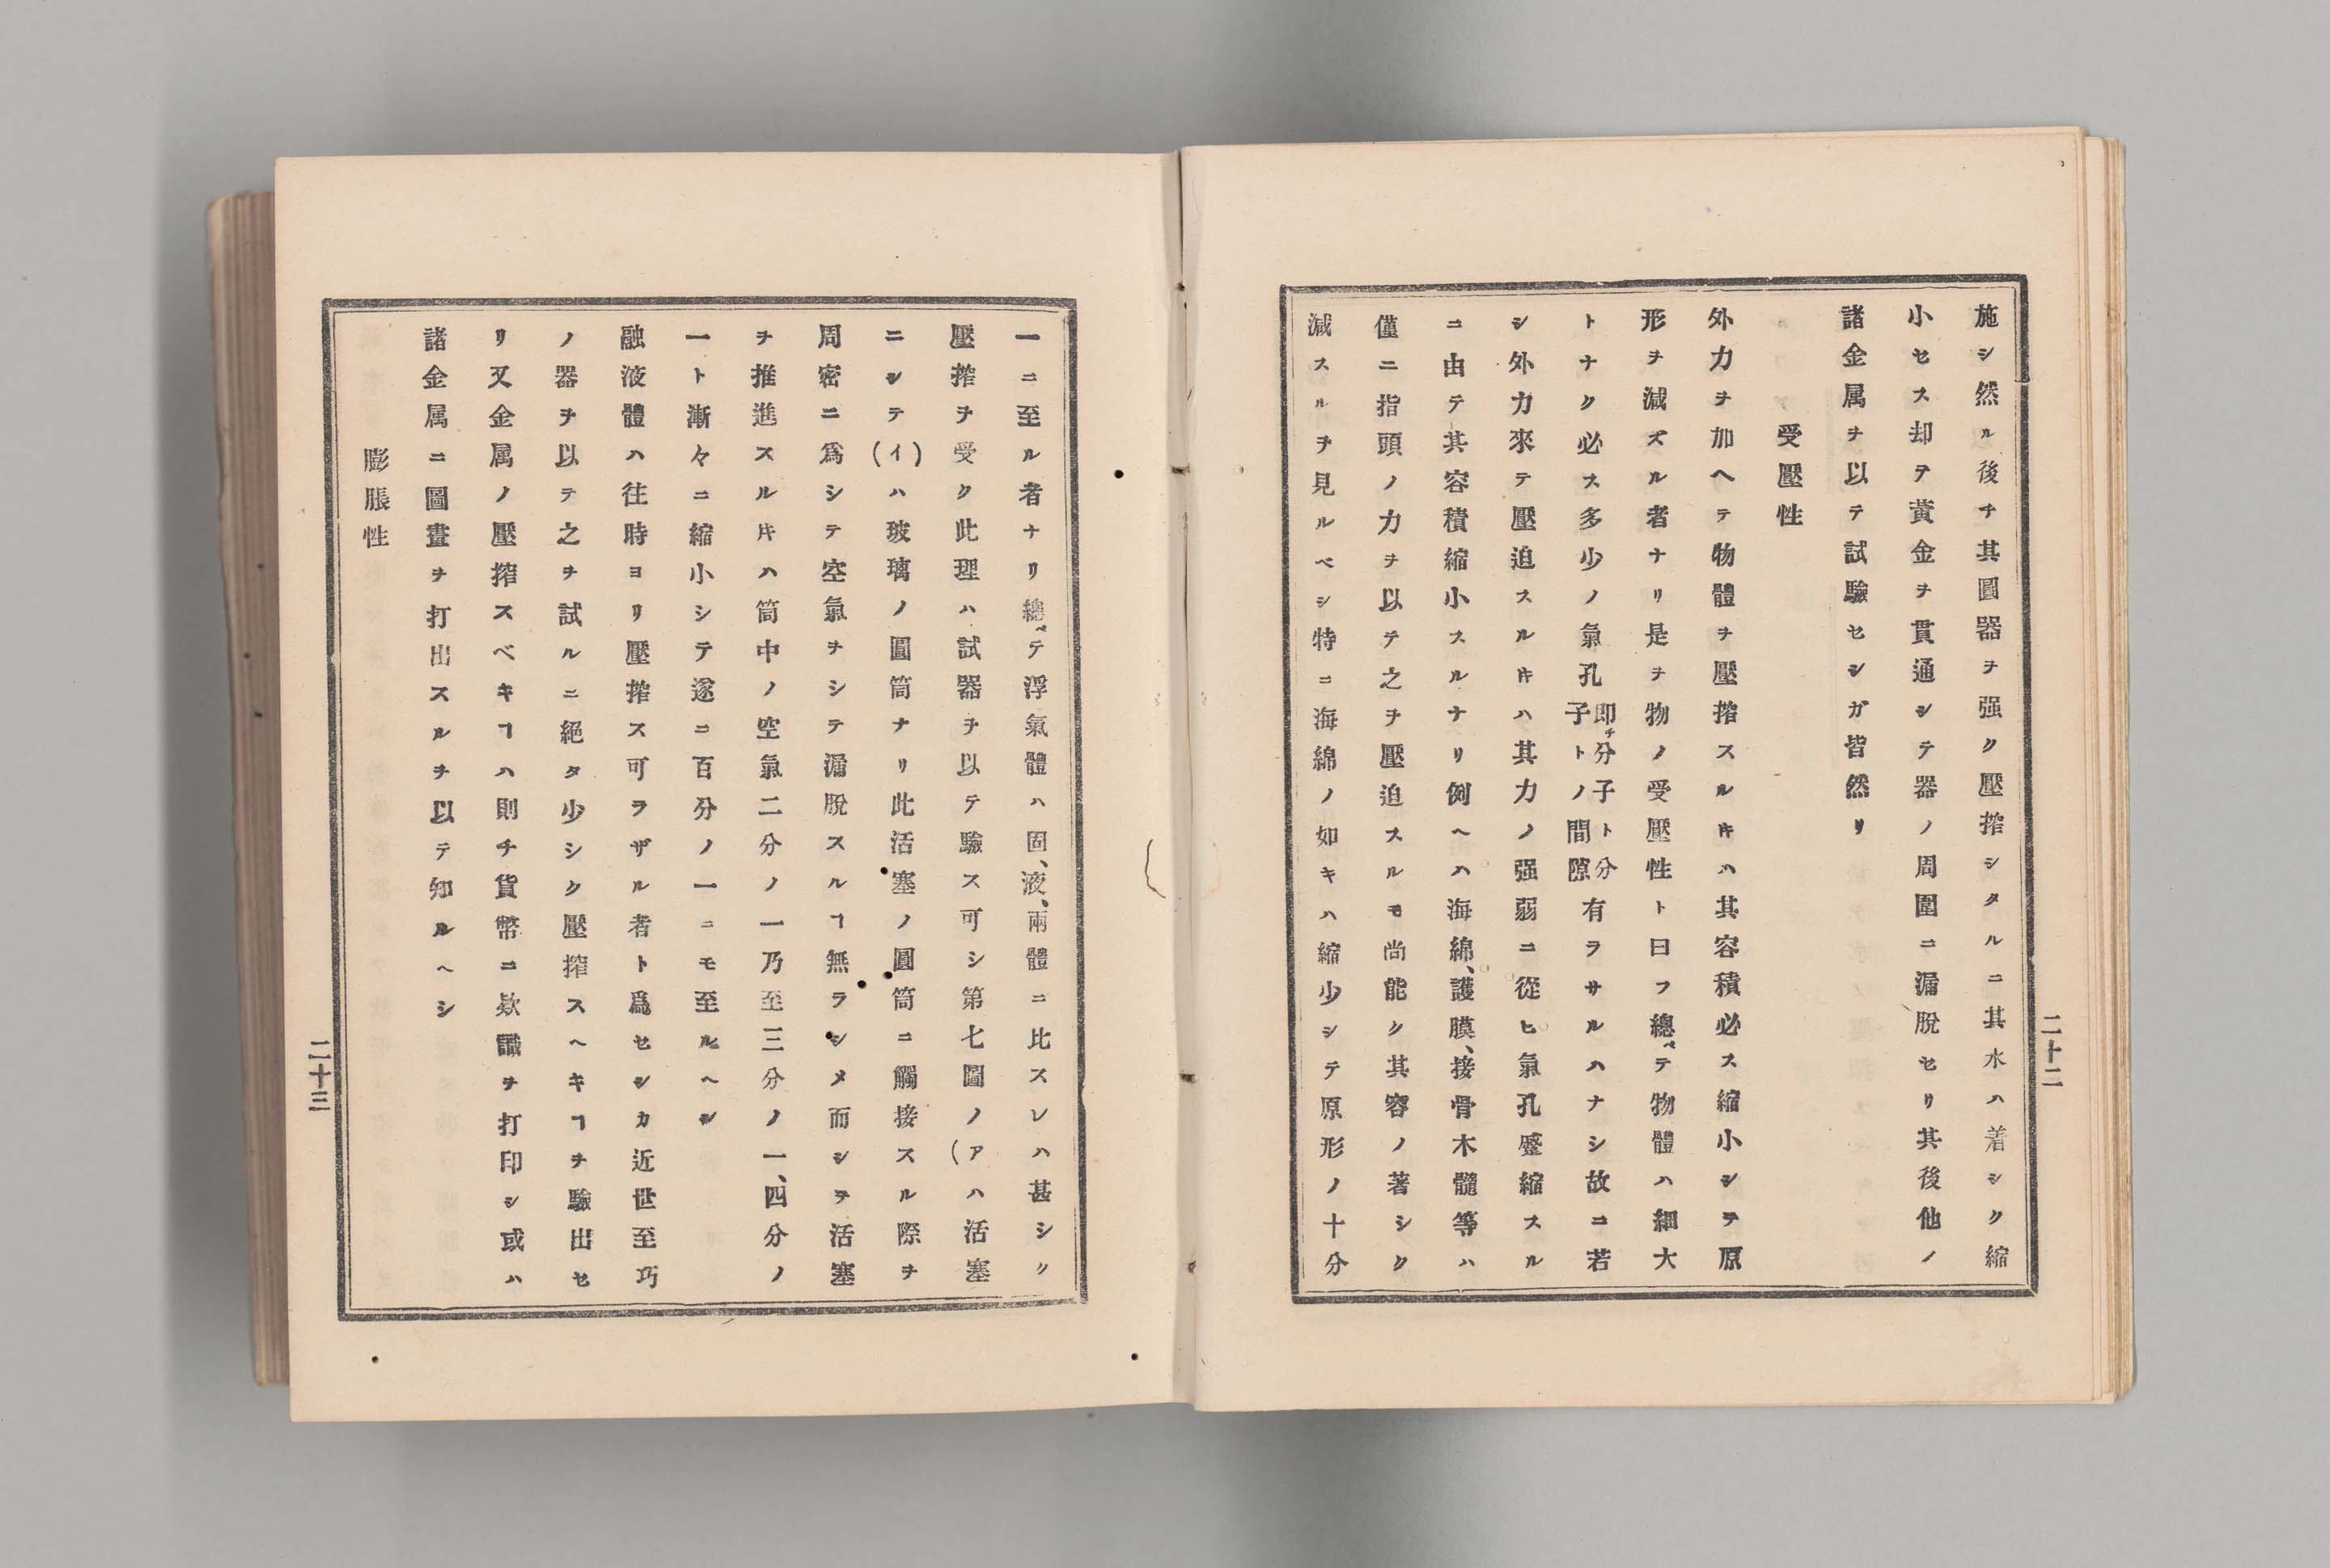 施シ然ル後チ其圓器ヲ强ク壓搾シタルニ其水ハ着シク縮
小セス却テ黄金ヲ貫通シテ器ノ周圍ニ漏脱セリ其後他ノ
諸金属ヲ以テ試驗セシガ皆然リ
受壓性
外力ヲ加ヘテ物體ヲ壓搾スルキハ其容積必ス縮小シテ原
形ヲ減ズル者ナリ是ヲ物ノ受壓性ト曰フ總ベテ物體ハ細大
トナク必ス多少ノ氣孔即チ分子ト分子トノ間隙有ラサルハナシ故ニ若
シ外力來テ壓迫スルキハ其力ノ强弱ニ從ヒ氣孔蹙縮スル
ニ由テ其容積縮小スルナリ例ヘハ海綿、護膜、接骨木髓等ハ
僅ニ指頭ノ力ヲ以テ之ヲ壓迫スルモ尚能ク其容ノ著シク
減スルヲ見ルベシ特ニ海綿ノ如キハ縮少シテ原形ノ十分
二十二
一ニ至ル者ナリ總ベテ浮氣體ハ固、液、兩體ニ比スレハ甚シク
壓搾ヲ受ク此理ハ試器ヲ以テ驗ス可シ第七圖ノ(アハ活塞
ニシテ(イ)ハ玻璃ノ圓筒ナリ此活塞ノ圓筒ニ觸接スル際ヲ
周密ニ爲シテ空氣ヲシテ漏脱スルヿ無ラシメ而シテ活塞
ヲ推進スルキハ筒中ノ空氣二分ノ一乃至三分ノ一、四分ノ
一ト漸々ニ縮小シテ遂ニ百分ノ一ニモ至ルヘシ
融液體ハ往時ヨリ壓搾ス可ラザル者ト爲セシカ近世至巧
ノ器ヲ以テ之ヲ試ルニ絕タ少シク壓搾スヘキヿヲ驗出セ
リ又金属ノ壓搾スベキヿハ則チ貨幣ニ欵識ヲ打印シ或ハ
諸金属ニ圖畫ヲ打出スルヲ以テ知ルヘシ
膨脹性
二十三